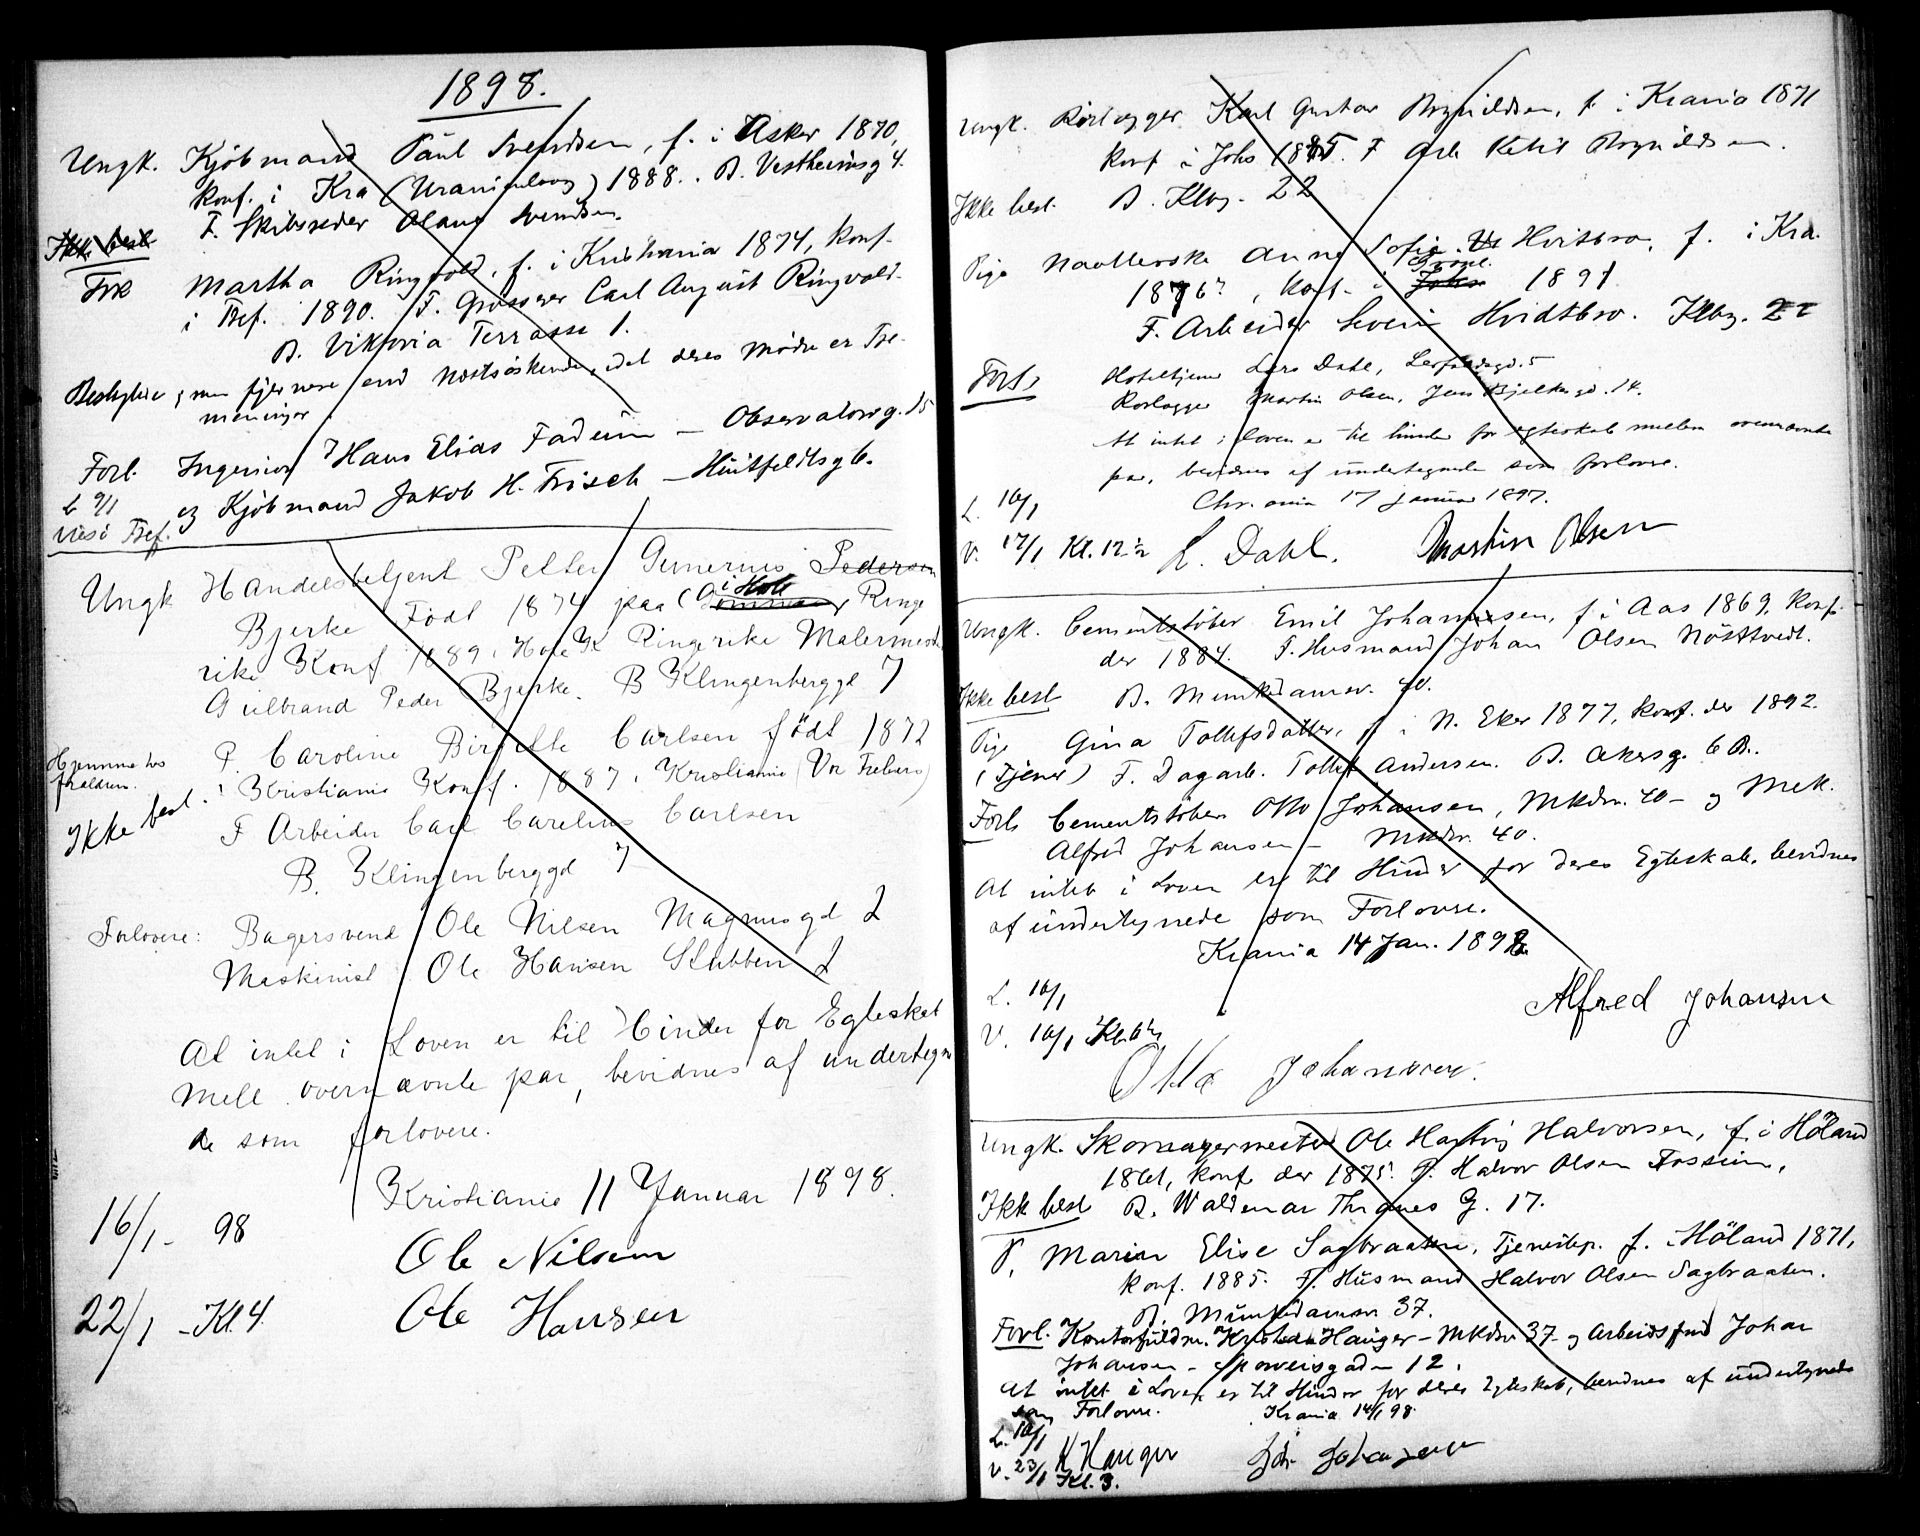 1898.
Ungk. Kjøbmand Paul Svendsen, f. i Asker 1870,
konf. i Kra (Uranienborg) 1888. B. Vestheimsg 4.
F. Skibsreder Olaus Svendsen.
Ikke best
Frk Martha Ringvold, f. i Kristiania 1874, konf.
i Tref. 1890. F. Grosserer Carl August Ringvold.
B. Viktoria Terrasse 1.
Beslegtede, men fjernere end Næstsøskende, idet deres Mødre er Tre-
meninger.
Forl. Ingeniør Hans Elias Fadum – Observatorieg. 15
L 9/1 og Kjøbmand Jakob H. Frisch – Huitfeldtsg 6.
Vies i Tref.
Ungk Handelsbetjent Petter Gunerius Pedersen
Bjerke Født 1874 paa i Hole Ringe
rike Konf 1889 i Hole K Ringerike Malermest
Gulbrand Peder Bjerke. B Klingenberggd 7
P. Caroline Birgitte Carlsen født 1872
Hjemme hos
forældrene.
i Kristiania Konf. 1887 i Kristiania (Vor Frelsers)
Ikke best.
F Arbeider Carl Carelius Carlsen
B. Klingenberggd 7
Forlovere: Bagersvend Ole Nilsen Magnusgd 2
Maskinist Ole Hansen Stubben 2
At intet i Loven er til Hinder for Egteskab
mell. overnævnte par, bevidnes af undertegne
de som forlovere.
Kristiania 11 Januar 1898.
16/1 - 98
Ole Nilsen
22/1 - Kl. 4
Ole Hansen
Ungk. Rørlægger Karl Gustav Brynildsen, f. i Krania 1871
konf i Johs 1885. F Arb Ketil Brynildsen.
Ikke best. B. Klbg. 22
Pige Naatlerske Anne Sofie Hvitbro, f. i Kra.
1876?, konf. i Grønl. Johs 1891
F. Arbeider Severin Hvidtbro. Klbg. 22
Forl. Hoteltjener Lars Dahl, Lerfaldsgd. 5
Rørlægger Martin Olsen, Jens Bjelkesgd. 14.
At intet i Loven er til hinder for egteskab mellem ovennævnte
par, bevidnes af undertegnede som forlovere.
Chr.ania 17 Januar 1897.
L. 16/1
V. 17/1 Kl. 12 1/2 L. Dahl. Martin Olsen
Ungk. Cementstøber Emil Johannesen, f. i Aas 1869, konf.
der 1884. F. Husmand Johan Olsen Nøstvedt.
Ikke best B. Munkedamsv. 40.
Pige Gina Tollefsdatter, f. i N. Eker 1877, konf. der 1892.
(Tjener) F. Dagarb. Tollef Andersen. B. Akersg. 6 B.
Forl. Cementstøber Otto Johansen, Mkdv. 40 – og Mek.
Alfred Johansen – Mkdv. 40.
At intet i Loven er til Hinder for deres Egteskab, bevidnes
af undertegnede som Forlovere.
Krania 14 Jan. 1898
L. 16/1
Alfred Johansen
V. 16/1 Kl. 6
Otto Johansen.
Ungk. Skomagermester Ole Hartvig Halvorsen, f. i Høland
1861, konf. der 1875. F. Halvor Olsen Fossum,
Ikke best B. Waldemar Thranes G. 17.
P. Maren Elise Sagbraaten, Tjenestep. f. i Høland 1871,
konf. 1885. F. Husmand Halvor Olsen Sagbraaten.
B. Munkedamsv 37.
Forl. Kontorfuldm. Kristian Hauger – Mkdv 37 – og Arbeidsfmd Johan
Johansen – Sporveisgaden 12.
At intet i Loven er til Hinder for deres Egteskab, bevidnes af undertegnede
som Forlovere. Krania 14/1 98.
L. 16/1
V. 23/1 K Hauger Joh Johansen
Kl. 3.